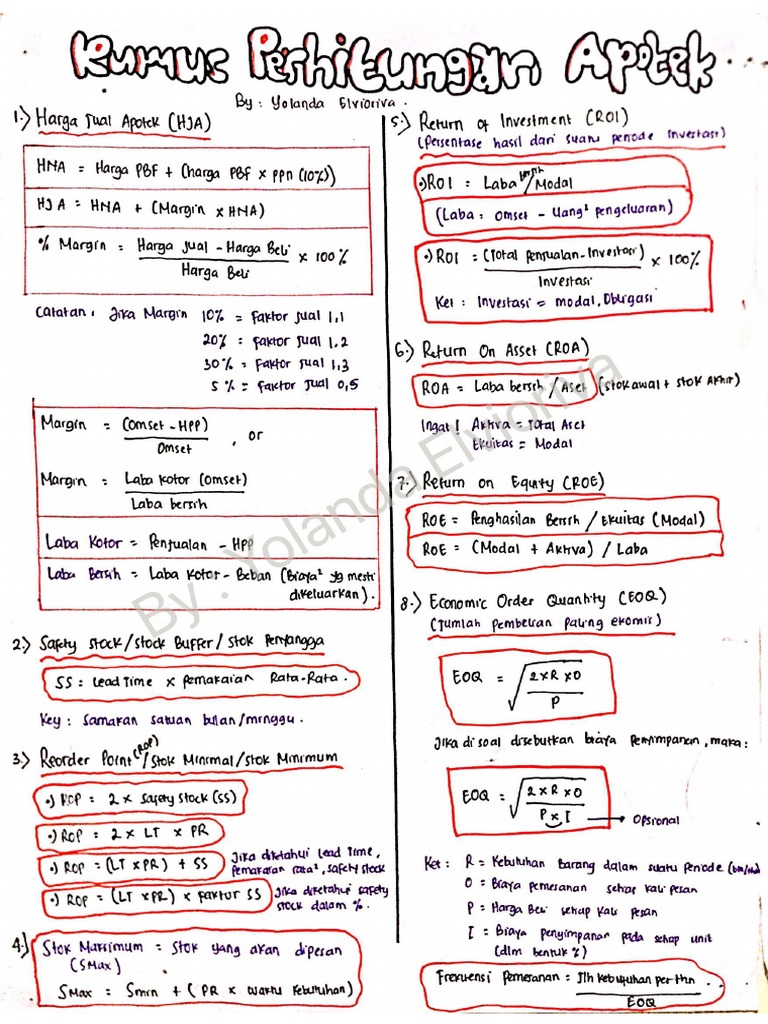 Rumus Perhitungan Apotek
By : Yolanda Elvioriva .
1.) Harga Jual Apotek (HJA)
HNA = Harga PBF + (harga PBF x PPN (10%))
HJA = HNA + (Margin x HNA)
% Margin = Harga Jual - Harga Beli x 100%
Harga Beli
Catatan : Jika Margin 10% = Faktor Jual 1,1
20% = Faktor Jual 1,2
30% = Faktor Jual 1,3
5% = Faktor Jual 0,5
Margin = (Omset - HPP) , or
Omset
Margin = Laba Kotor (Omset)
Laba bersih
Laba Kotor = Penjualan - HPP
Laba Bersih = Laba Kotor - Beban (Biaya² yg mesti
dikeluarkan).
2.) Safety Stock/Stock Buffer/Stok Penyangga
SS : Lead Time x Pemakaian Rata-Rata.
Key : Samakan satuan bulan/minggu.
3.) Reorder Point (ROP)/Stok Minimal/Stok Minimum
•) ROP = 2 x Safety Stock (SS)
•) ROP = 2 x LT x PR
•) ROP = (LT x PR) + SS Jika diketahui Lead Time,
Pemakaian rata², safety stock
•) ROP = (LT x PR) x Faktor SS Jika diketahui safety
stock dalam %.
4.) Stok Maksimum = Stok yang akan dipesan
(SMax)
SMax = Smin + (PR x Waktu Kebutuhan)
5.) Return of Investment (ROI)
(Persentase hasil dari suatu periode investasi)
•) ROI = Laba bersih/Modal
(Laba : Omset - Uang² pengeluaran)
•) ROI = (Total Penjualan-Investasi) x 100%
Investasi
Ket : Investasi = modal, Obligasi
6.) Return On Asset (ROA)
ROA = Laba bersih / Aset (stok awal + stok Akhir)
Ingat! Aktiva = Total Aset
Ekuitas = Modal
7.) Return on Equity (ROE)
ROE = Penghasilan Bersih / Ekuitas (Modal)
ROE = (Modal + Aktiva) / Laba
8.) Economic Order Quantity (EOQ)
(Jumlah pembelian paling ekomis)
EOQ = √ 2 x R x O
P
Jika di soal disebutkan biaya Penyimpanan, maka :
EOQ = √ 2 x R x O
P x I → Opsional
Ket : R = Kebutuhan Barang dalam suatu Periode
O = Biaya pemesanan setiap kali pesan
P = Harga Beli setiap kali pesan
I = Biaya penyimpanan pada setiap unit
(dlm bentuk %)
Frekuensi Pemesanan = Jlh kebutuhan per thn .
EOQ
By . Yolanda Elvioriva